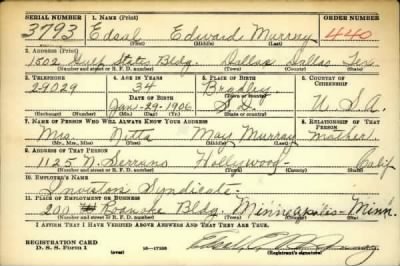 SERIAL NUMBER 1. NAME (Print) ORDER NUMBER
3793 Edsal Edward Murray 440
(First) (Middle) (Last)
2. ADDRESS (Print)
1802 Gulf States Bldg. Dallas Dallas Tex.
(Number and street or R. F. D. number) (Town) (County) (State)
3. TELEPHONE 4. AGE IN YEARS 5. PLACE OF BIRTH 6. COUNTRY OF CITIZENSHIP
29029 34 Bradley
DATE OF BIRTH (Town or county)
Jan-29-1906 S.D. U.S.A.
(Exchange) (Number) (Mo.) (Day) (Yr.) (State or country)
7. NAME OF PERSON WHO WILL ALWAYS KNOW YOUR ADDRESS 8. RELATIONSHIP OF THAT PERSON
Mrs. Netta May Murray Mother
(Mr., Mrs., Miss) (First) (Middle) (Last)
9. ADDRESS OF THAT PERSON
1125 N. Serrano Hollywood- Calif
(Number and street or R. F. D. number) (Town) (County) (State)
10. EMPLOYER'S NAME
Investors Syndicate-
11. PLACE OF EMPLOYMENT OR BUSINESS
200 Roanoke Bldg. Minneapolis-Minn.
(Number and street or R. F. D. number) (Town) (County) (State)
I AFFIRM THAT I HAVE VERIFIED ABOVE ANSWERS AND THAT THEY ARE TRUE.
REGISTRATION CARD
D. S. S. Form 1 (over) 16—17105
(Registrant's signature)